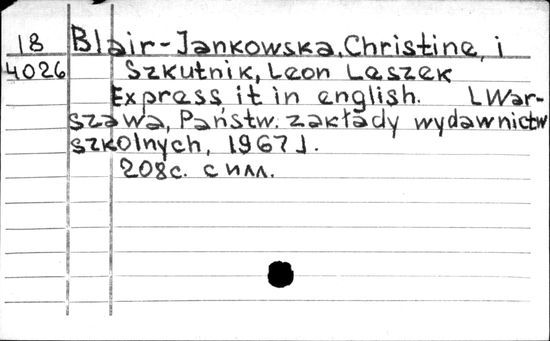 18 Blair-Jankowska, Christine, i
4026 Szkutnik, Leon Leszek
Express it in english. [War-
szawa, Państw. zakłady wydawnictw
szkolnych, 1967].
208с. с илл.